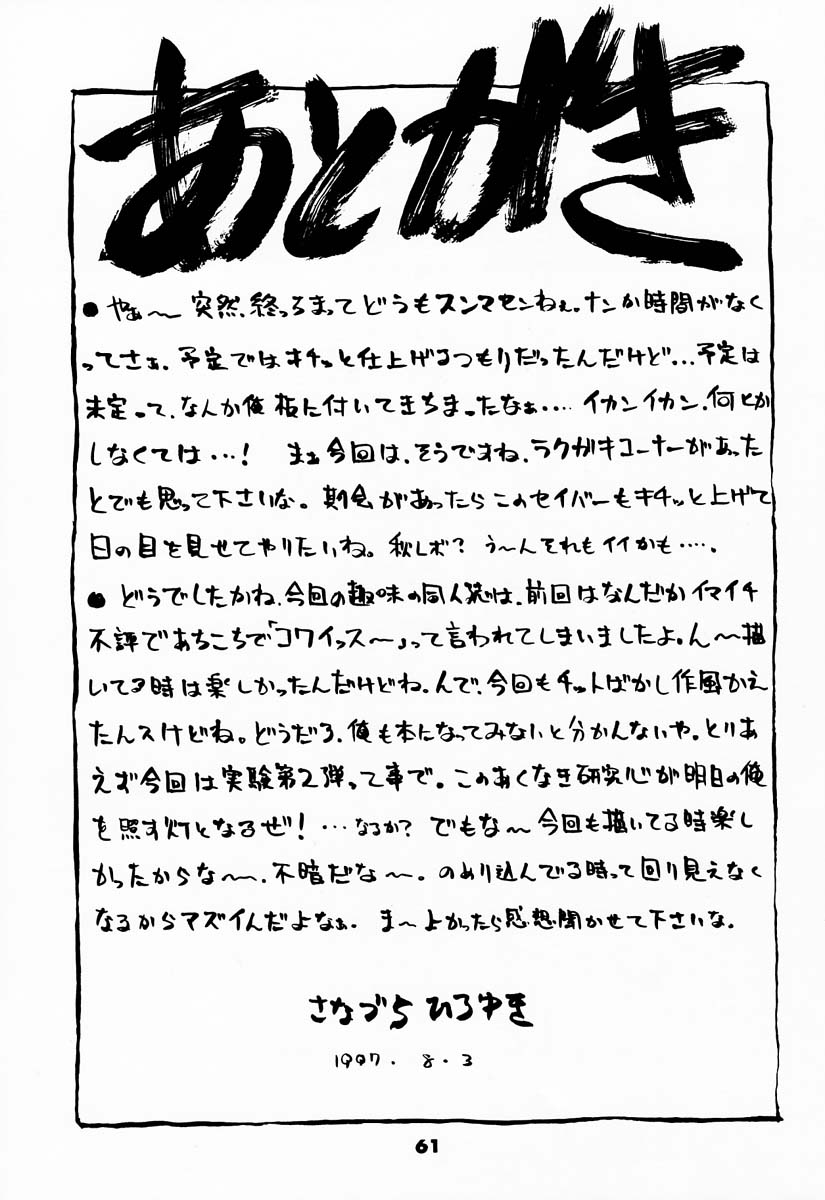 あとがき
●やぁ〜 突然、終っちまってどうもスンマセンねぇ。ナンか時間がなく
ってさぁ、予定ではキチッと仕上げるつもりだったんだけど…予定は
未定って、なんか俺板に付いてきちまったなぁ…. イカンイカン、何とか
しなくては…! まぁ今回は、そうですね、ラクガキコーナーがあった
とでも思って下さいな。期会があったらこのセイバーもキチッと上げて
日の目を見せてやりたいね。秋レボ? う〜んそれもイイかも….
●どうでしたかね、今回の趣味の同人誌は、前回はなんだかイマイチ
不評であちこちで「コワイっス〜」って言われてしまいましたよ。ん〜描
いてる時は楽しかったんだけどね。んで、今回もチットばかし作風かえ
たんスけどね。どうだろ、俺も本になってみないと分かんないや。とりあ
えず今回は実験第2弾って事で。このあくなき研究心が明日の俺
を照す灯となるぜ! …なるか? でもな〜今回も描いてる時楽し
かったからな〜、不暗だな〜。のめり込んでる時って回り見えなく
なるからマズイんだよなぁ. ま〜よかったら感想聞かせて下さいな。
さなづら ひろゆき
1997. 8.3
61